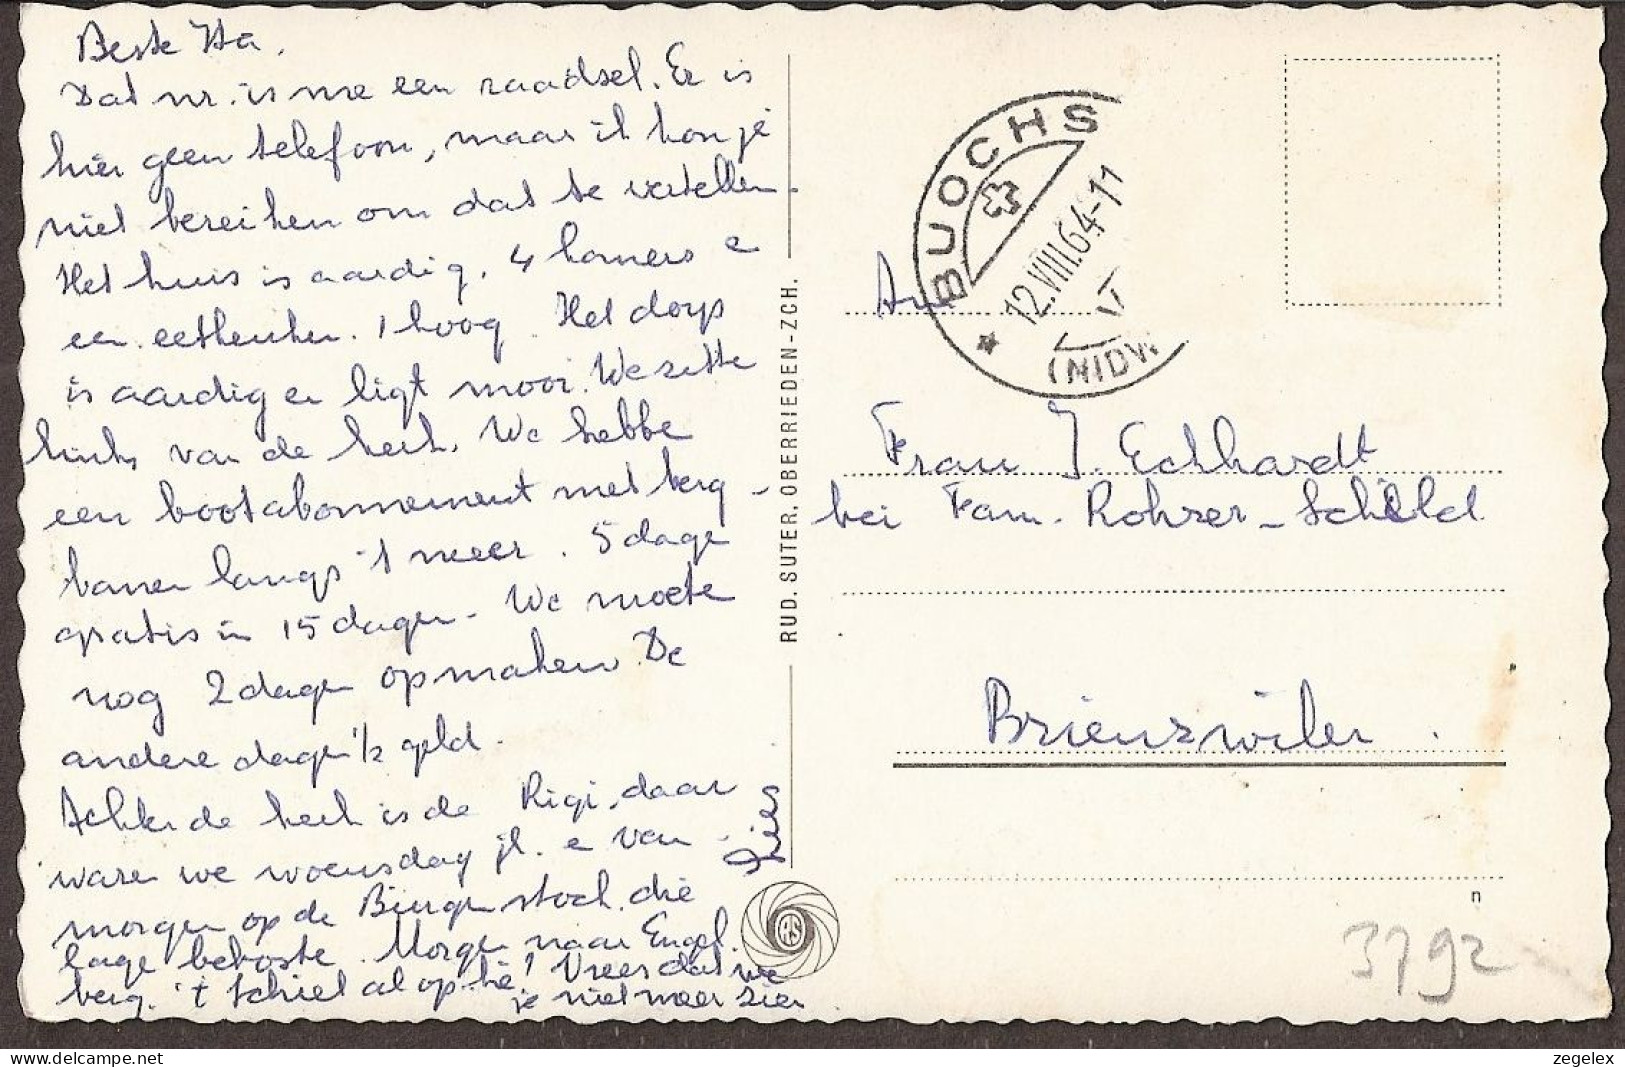 Beste Ita.
Dat nr. is me een raadsel. Er is
hier geen telefoon, maar ik kon je
niet bereiken om dat te vertellen.
Het huis is aardig. 4 kamers e
een eetkeuken. 1 hoog. Het dorp
is aardig en ligt mooi. We zitte
links van de kerk. We hebbe
een bootabonnement met berg-
banen langs 't meer. 5 dage
gratis in 15 dagen. We moete
nog 2 dagen opmaken. De
andere dagen ½ geld.
Achter de kerk is de Rigi, daar
ware we woensdag jl. e van-
morgen op de Bürgenstock die
lage bekoste. Morgen naar Engel-
berg. 't schiet al op hè! Vrees dat we
je niet meer zien
RUD. SUTER, OBERRIEDEN-ZCH.
RS
BUOCHS
12.VIII.64-11
(NIDW
An
Frau J. Eckhardt
bei Fam. Rohrer-Schild
Brienzwiler.
n
3792
zegelex.com
zegelex